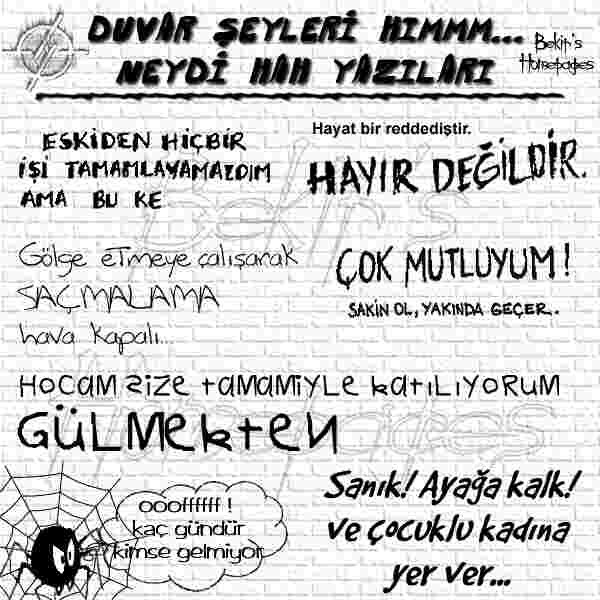 DUVAR ŞEYLERİ HIMMM...
NEYDİ HAH YAZILARI
Bekir's
Homepages
ESKİDEN HİÇBİR
İŞİ TAMAMLAYAMAZDIM
AMA BU KE
Hayat bir reddediştir.
HAYIR DEĞİLDİR.
Gölge etmeye çalışarak
SAÇMALAMA
hava kapalı...
ÇOK MUTLUYUM!
SAKİN OL, YAKINDA GEÇER.
HOCAM SİZE TAMAMİYLE KATILIYORUM
GÜLMEKTEN
ooofffffff !
kaç gündür
kimse gelmiyor
Sanık! Ayağa kalk!
Ve çocuklu kadına
yer ver...
Bekir's
Homepages